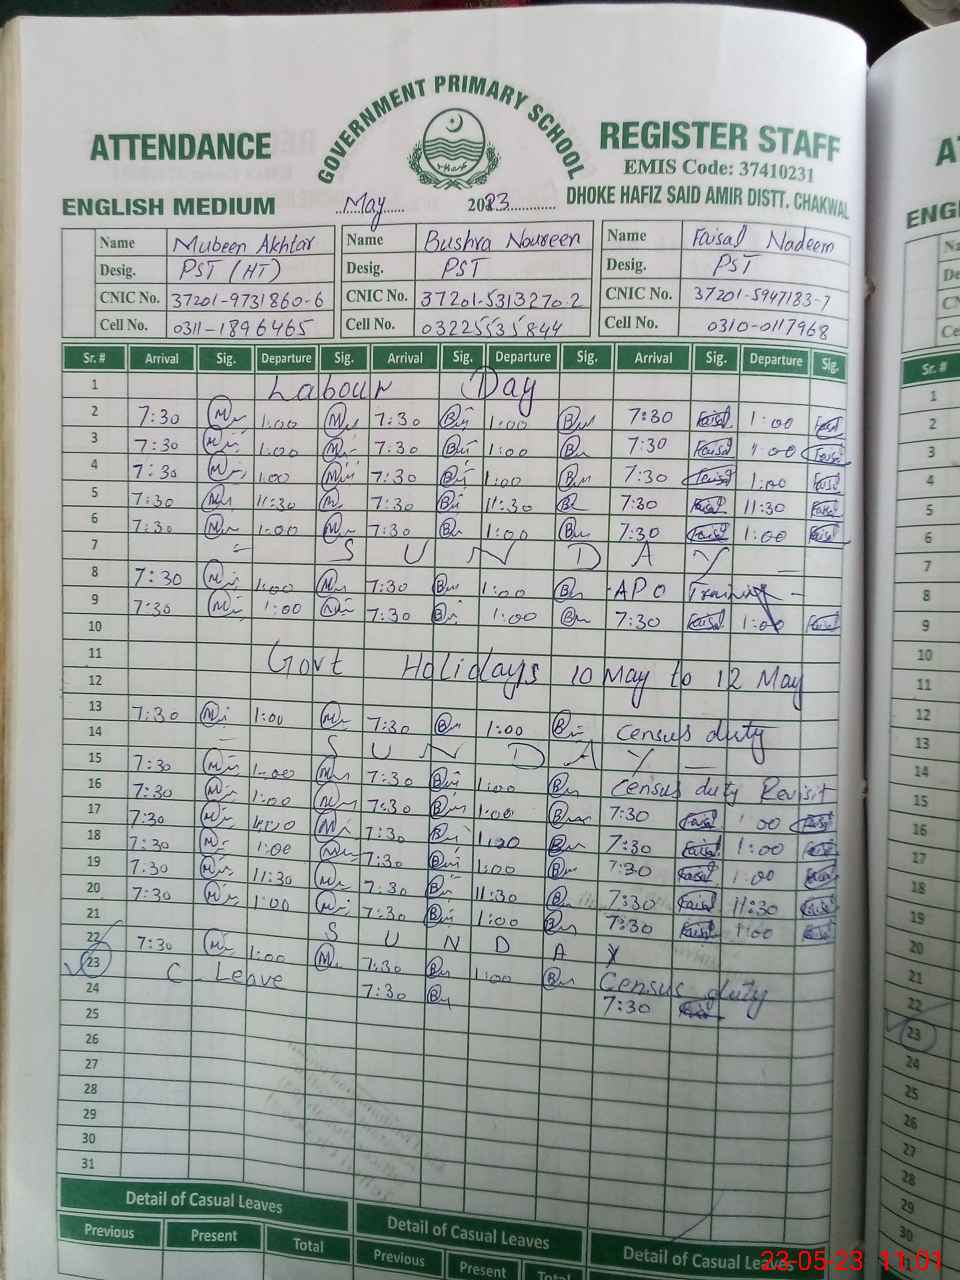 GOVERNMENT PRIMARY SCHOOL
ATTENDANCE REGISTER STAFF
EMIS Code: 37410231
ENGLISH MEDIUM May 2023 DHOKE HAFIZ SAID AMIR DISTT. CHAKWAL
Name Mubeen Akhtar Name Bushra Noureen Name Faisal Nadeem
Desig. PST (HT) Desig. PST Desig. PST
CNIC No. 37201-9731860-6 CNIC No. 37201-5313270-2 CNIC No. 37201-5947183-7
Cell No. 0311-1896465 Cell No. 03225535844 Cell No. 0310-0117968
Sr. # Arrival Sig. Departure Sig. Arrival Sig. Departure Sig. Arrival Sig. Departure Sig.
1 Labour Day
2 7:30 1:00 7:30 1:00 7:30 Faisal 1:00 Faisal
3 7:30 1:00 7:30 1:00 7:30 Faisal 1:00 Faisal
4 7:30 1:00 7:30 1:00 7:30 Faisal 1:00 Faisal
5 7:30 11:30 7:30 11:30 7:30 Faisal 11:30 Faisal
6 7:30 1:00 7:30 1:00 7:30 Faisal 1:00 Faisal
7 - S U N D A Y -
8 7:30 1:00 7:30 1:00 - APO Training -
9 7:30 1:00 7:30 1:00 7:30 Faisal 1:00 Faisal
10
11 Govt Holidays 10 May to 12 May
12
13 7:30 1:00 7:30 1:00 Census duty
14 - S U N D A Y -
15 7:30 1:00 7:30 1:00 Census duty Revisit
16 7:30 1:00 7:30 1:00 7:30 Faisal 1:00 Faisal
17 7:30 1:00 7:30 1:00 7:30 Faisal 1:00 Faisal
18 7:30 1:00 7:30 1:00 7:30 Faisal 1:00 Faisal
19 7:30 11:30 7:30 11:30 7:30 Faisal 11:30 Faisal
20 7:30 1:00 7:30 1:00 7:30 Faisal 1:00 Faisal
21 S U N D A Y
22 7:30 1:00 7:30 1:00 Census duty
23 C Leave 7:30 7:30
24
25
26
27
28
29
30
31
Detail of Casual Leaves Detail of Casual Leaves Detail of Casual Leaves
Previous Present Total Previous Present Total
23-05-23 11:01
Sr. #
1
2
3
4
5
6
7
8
9
10
11
12
13
14
15
16
17
18
19
20
21
22
23
24
25
26
27
28
29
30